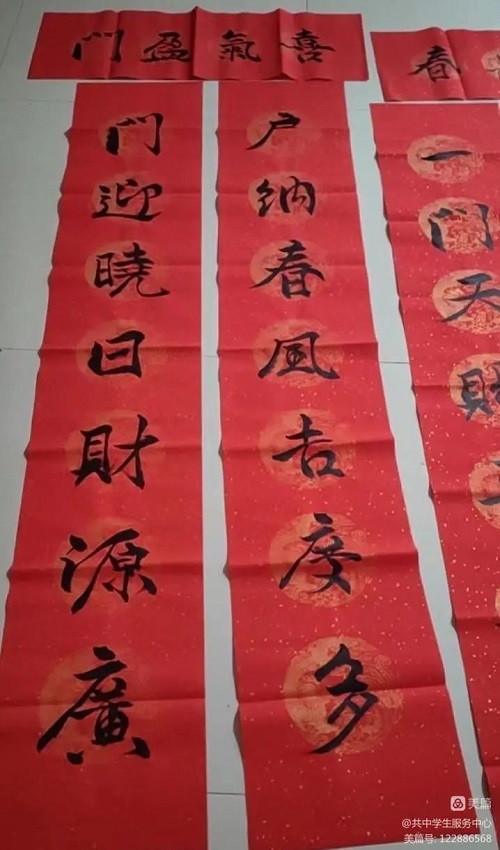 喜氣盈門
門迎曉日財源廣
户納春風吉慶多
春
一門天
美篇
@共中学生服务中心
美篇号: 122886568